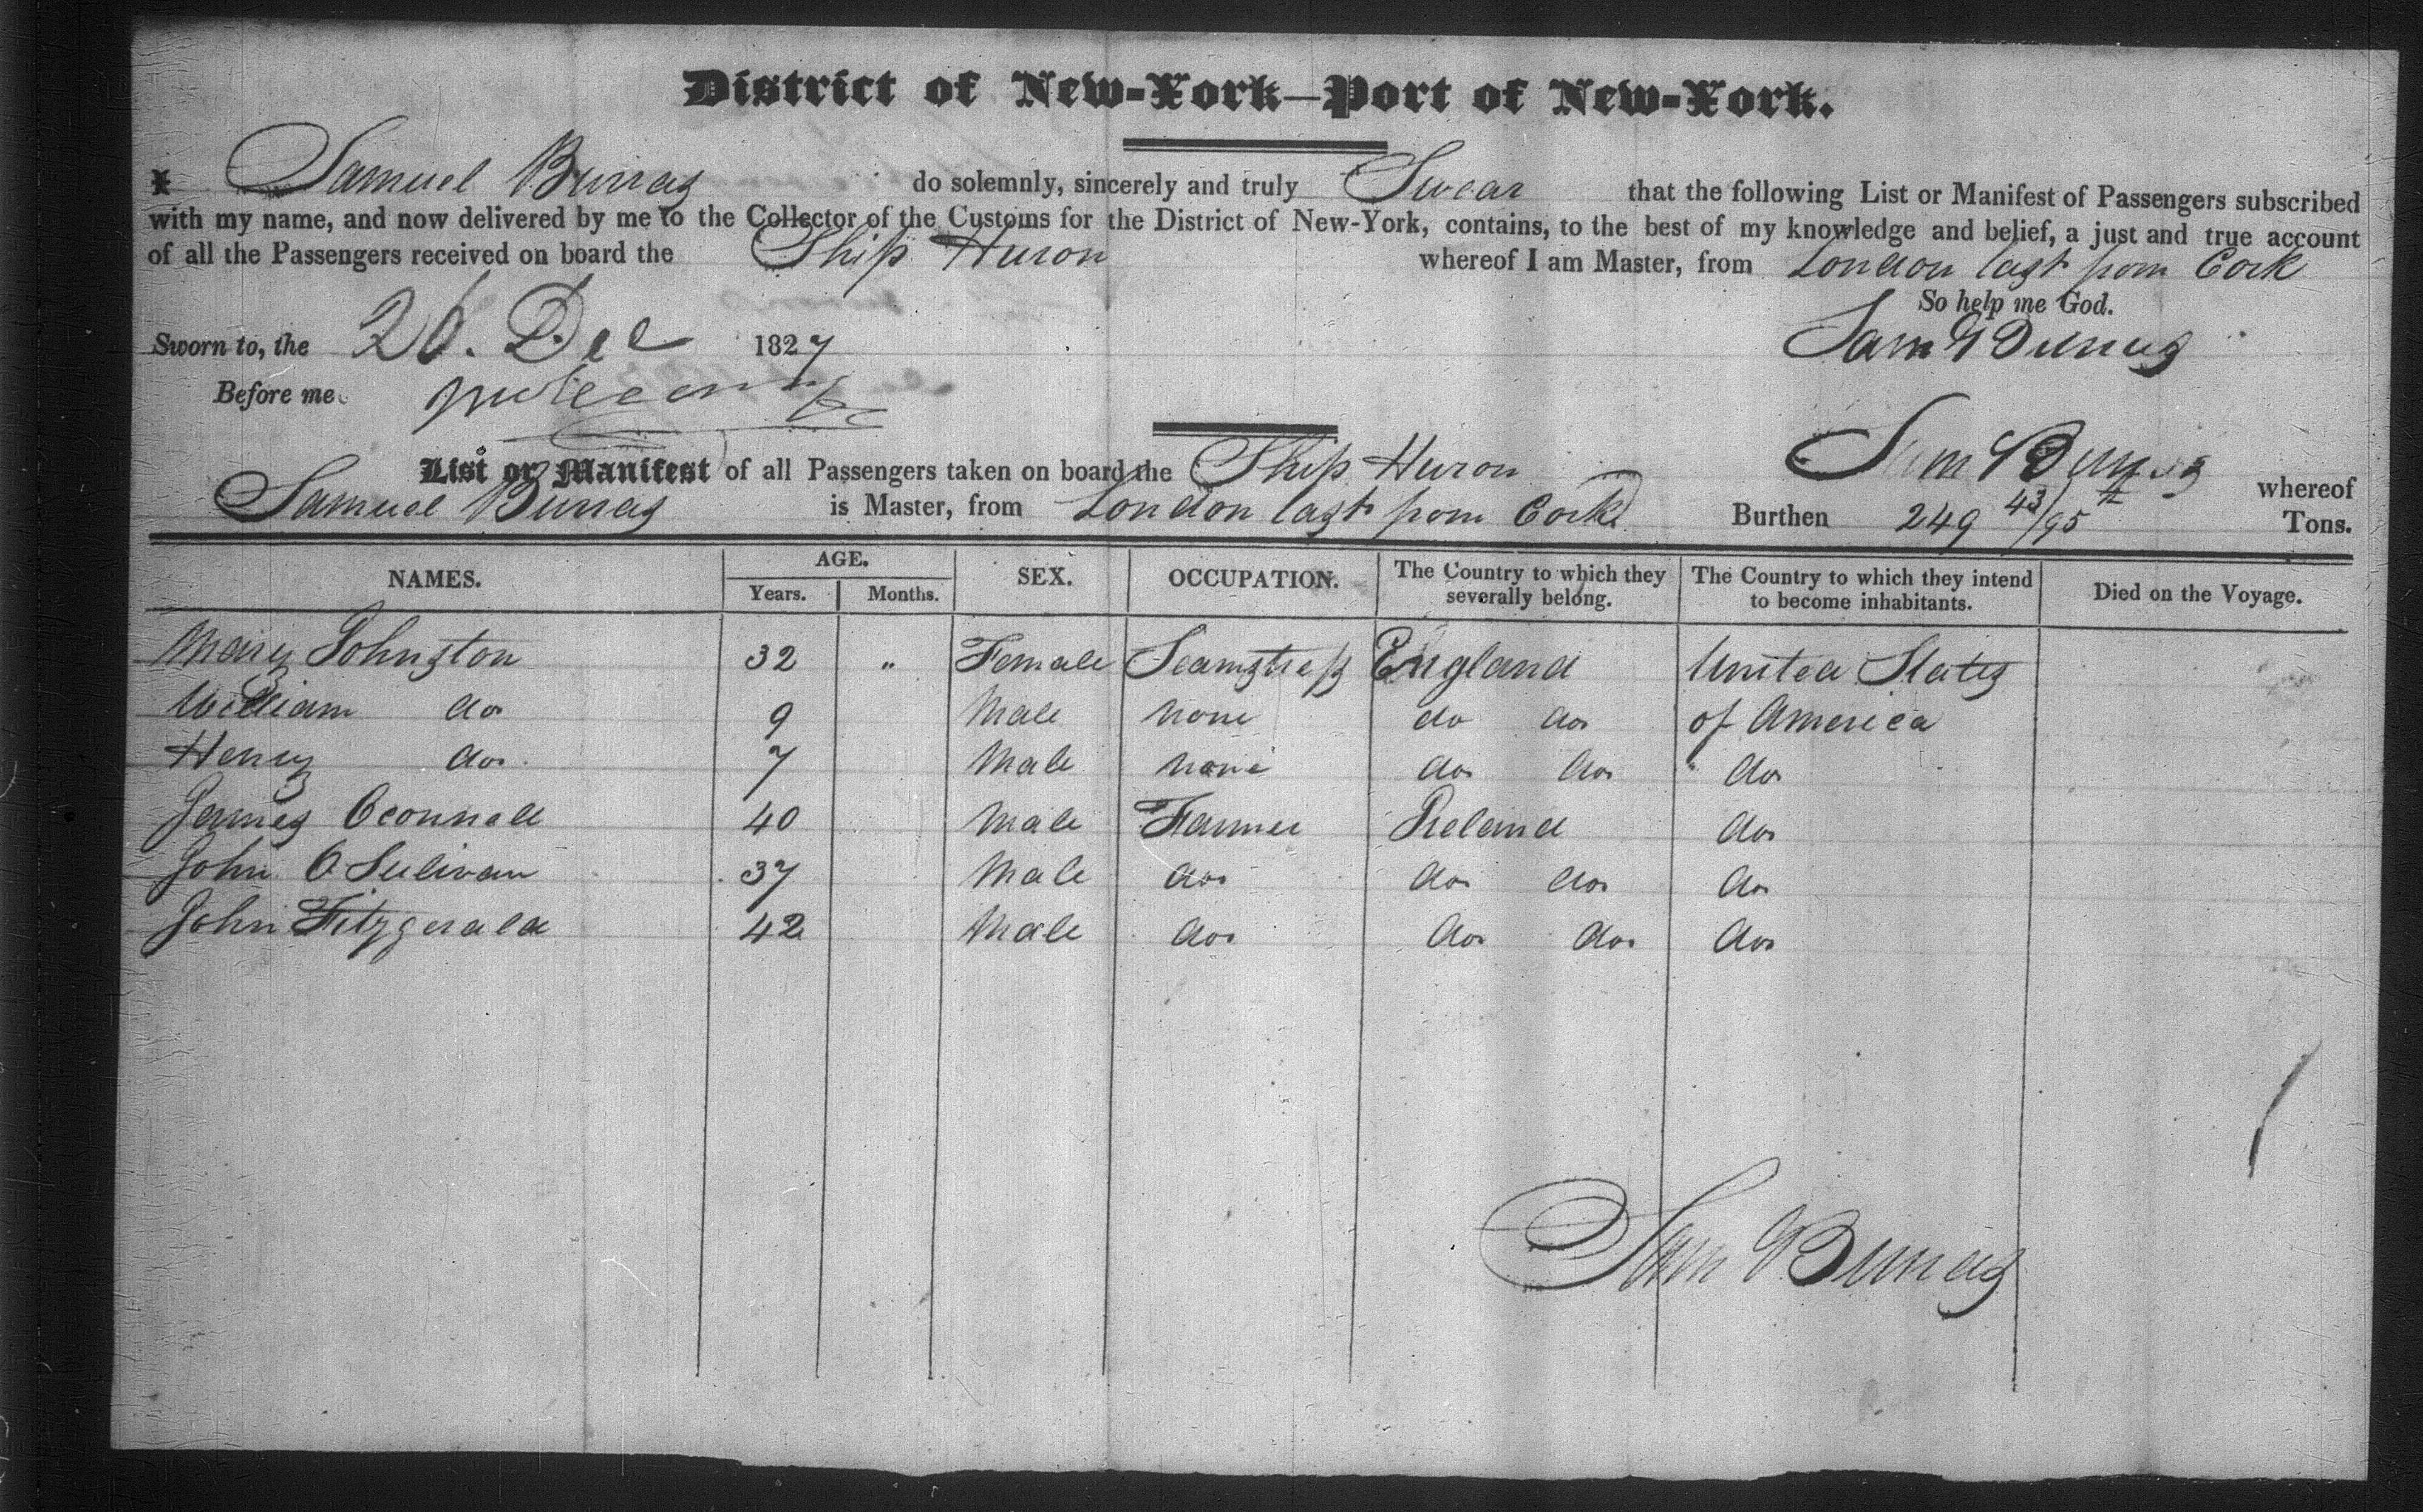 District of New-York—Port of New-York.
I Samuel Burras do solemnly, sincerely and truly Swear that the following List or Manifest of Passengers subscribed
with my name, and now delivered by me to the Collector of the Customs for the District of New-York, contains, to the best of my knowledge and belief, a just and true account
of all the Passengers received on board the Ship Huron whereof I am Master, from London last from Cork
So help me God.
Sworn to, the 26. Dec 1827 Sam Burras
Before me
List or Manifest of all Passengers taken on board the Ship Huron Sam Burras whereof
Samuel Burras is Master, from London last from Cork Burthen 249 43/95th Tons.
NAMES. AGE. Years. Months. SEX. OCCUPATION. The Country to which they severally belong. The Country to which they intend to become inhabitants. Died on the Voyage.
Mary Johnston 32 " Female Seamstress England United States
William do 9 Male none do do of America
Henry do. 7 Male none do do do
James Oconnell 40 Male Farmer Ireland do
John O Sulivan 37 Male do do do do
John Fitzgerald 42 Male do do do do
Sam Burras